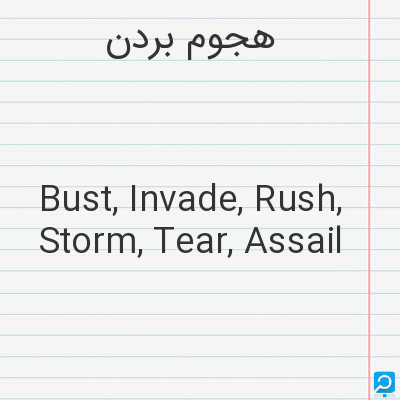 هجوم بردن
Bust, Invade, Rush,
Storm, Tear, Assail